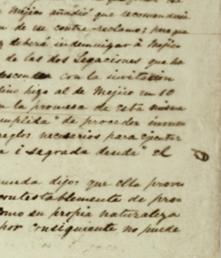 Mejico añadió que recomendari
de ese contra-reclamo; porque
y deberá indemnizar á Mejico
de las dos Legaciones que ha
con la invitacion
hizo al de Mejico en 10
la promesa de esta misma
umplida" de proceder inmen
reglos necesarios para ejecutar
a i sagrada deuda" el
queda dijo: que ella prove
contestablemente de pro
como su propia naturaleza
por consiguiente no puede